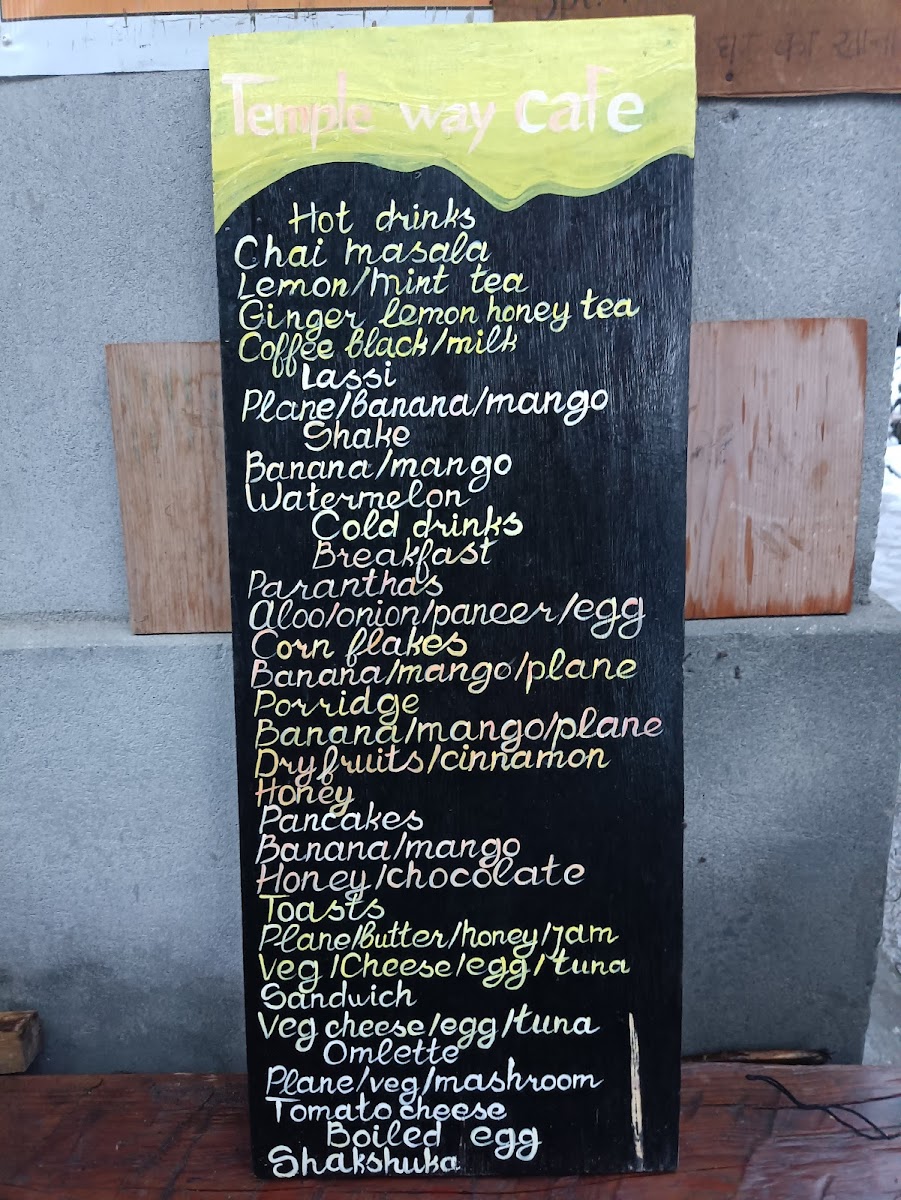 Temple way cafe
Hot drinks
Chai masala
Lemon/mint tea
Ginger lemon honey tea
Coffee black/milk
Lassi
Plane/banana/mango
Shake
Banana/mango
Watermelon
Cold drinks
Breakfast
Paranthas
Aloo/onion/paneer/egg
Corn flakes
Banana/mango/plane
Porridge
Banana/mango/plane
Dryfruits/cinnamon
Honey
Pancakes
Banana/mango
Honey/chocolate
Toasts
Plane/butter/honey/jam
Veg/Cheese/egg/tuna
Sandwich
Veg cheese/egg/tuna
Omlette
Plane/veg/mashroom
Tomato cheese
Boiled egg
Shakshuka